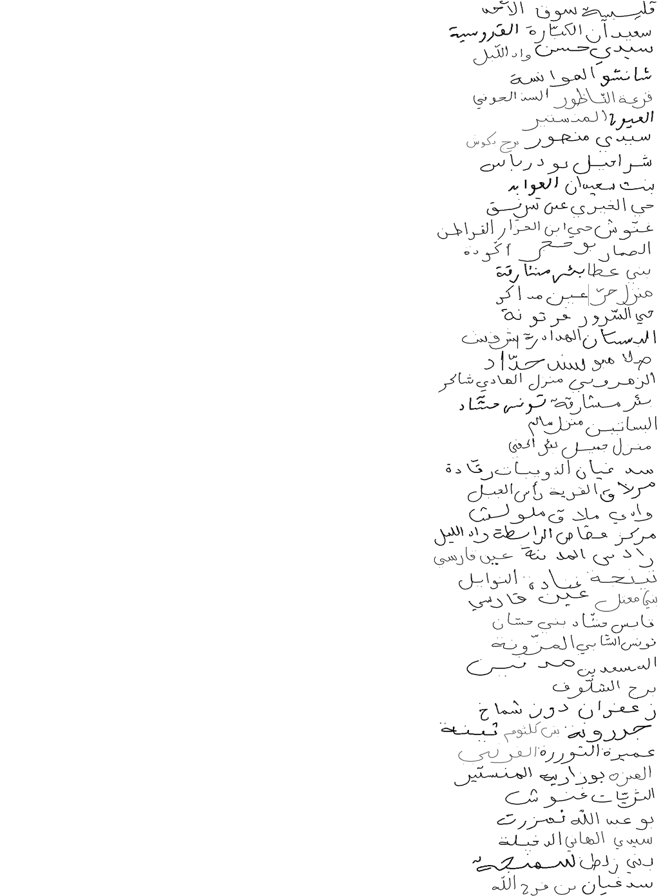 قليبية سوق الأحد
سعيدان الكتارة القدوسية
سيدي حسن واد الليل
شانشو الهوانسة
قرعة الناظور السد العوني
العيون المنستير
سيدي منصور برج بكوش
شراحيل بودرياس
بنت سعيدان العوابد
حي الخيري عين تبرنق
غنوش حي ابن الجزار القراطن
الصمار بو أكودة
بني عطا بئر مشارقة
منزل حر عين مذاكر
حي السرور فرتونة
البستان الهدادرة
سند حداد
الزهروني منزل الهادي شاكر
بئر مشارقة تونس حشاد
البساتين منزل سالم
منزل جميل بئر الحفي
سد غيان الذويبات رقادة
مرناق القرية رأس الجبل
وادي ملاق ملولش
مركز عقاص الرابطة واد الليل
رادس المدينة عين فارسي
نبيحة عبادة النوايل
بني معقل عين فارسي
قابس حشاد بني حسان
تونس الشابي المزونة
المسعدين مدنين
برج الشلوف
زعفران دوز شماخ
جدرونة بئر كلثوم ثبينة
عميرة التوررة الغربي
العنزة بوزارية المنستير
الثريات غنوش
بو عبد الله تمزرت
سيدي الهاني الدخيلة
بني زلطن سمنجة
سد غيان بن فرج الله